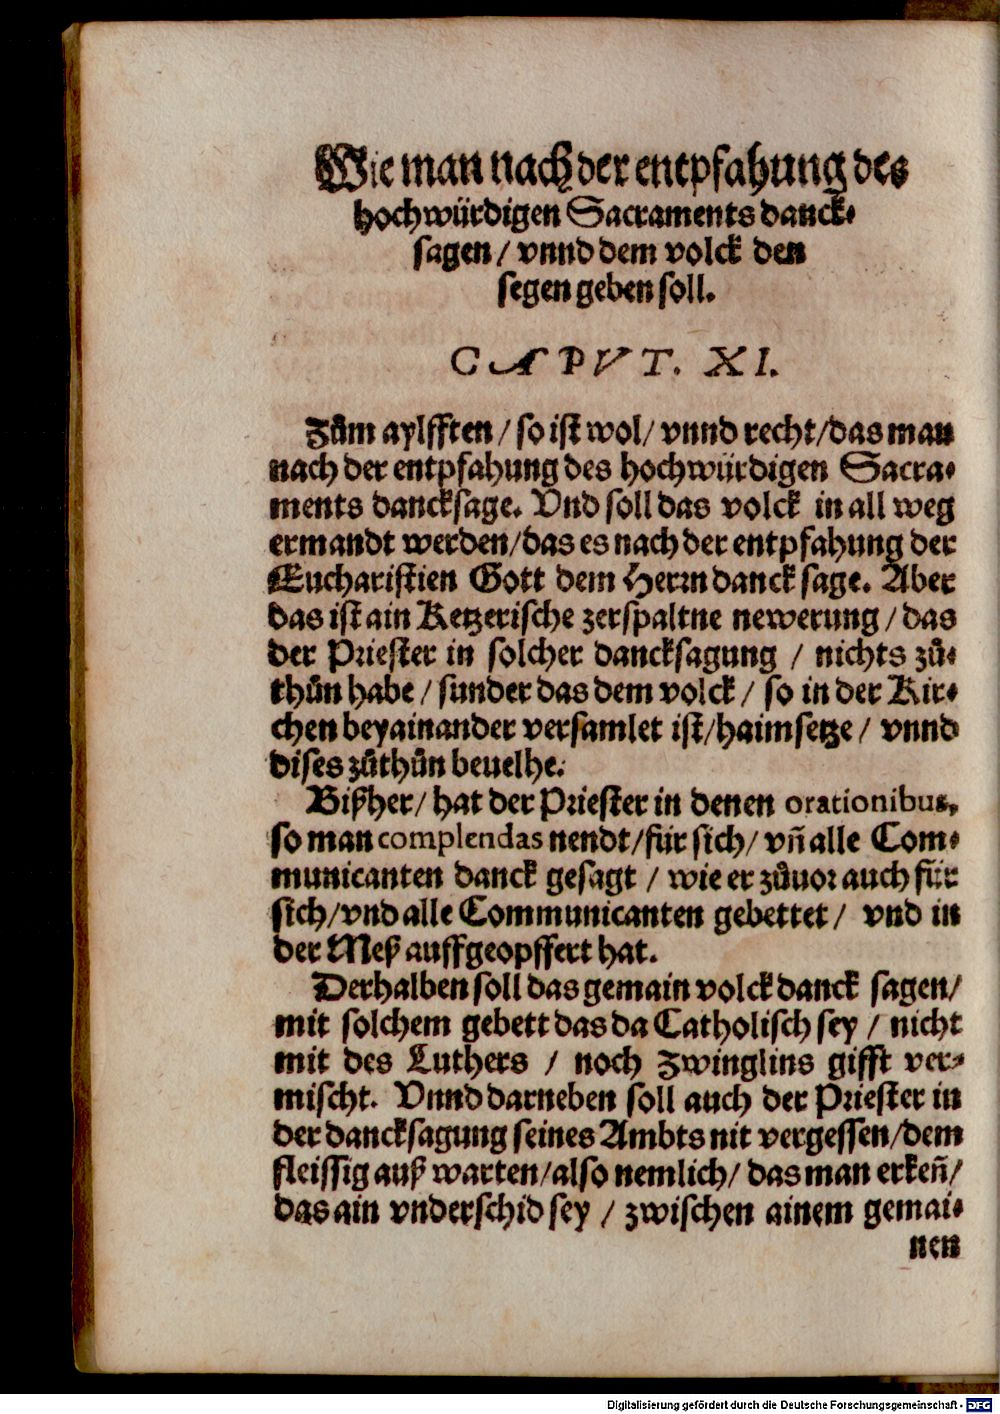 Wie man nach der entpfahung des
hochwürdigen Sacraments danck-
sagen / vnnd dem volck den
segen geben soll.
CAPVT. XI.
Zům aylfften / so ist wol / vnnd recht / das man
nach der entpfahung des hochwürdigen Sacra-
ments dancksage. Vnd soll das volck in all weg
ermandt werden / das es nach der entpfahung der
Eucharistien Gott dem Herrn danck sage. Aber
das ist ain Ketzerische zerspaltne newerung / das
der Priester in solcher dancksagung / nichts zů-
thůn habe / sunder das dem volck / so in der Kir-
chen beyainander versamlet ist / haimsetze / vnnd
dises zůthůn beuelhe.
Bißher / hat der Priester in denen orationibus,
so man complendas nendt / für sich / vñ alle Com-
municanten danck gesagt / wie er zůuor auch für
sich / vnd alle Communicanten gebettet / vnd in
der Meß auffgeopffert hat.
Derhalben soll das gemain volck danck sagen /
mit solchem gebett das da Catholisch sey / nicht
mit des Luthers / noch Zwinglins gifft ver-
mischt. Vnnd darneben soll auch der Priester in
der dancksagung seines Ambts nit vergessen / dem
fleissig auß warten / also nemlich / das man erkeñ /
das ain vnderschid sey / zwischen ainem gemai-
nen
Digitalisierung gefördert durch die Deutsche Forschungsgemeinschaft - DFG